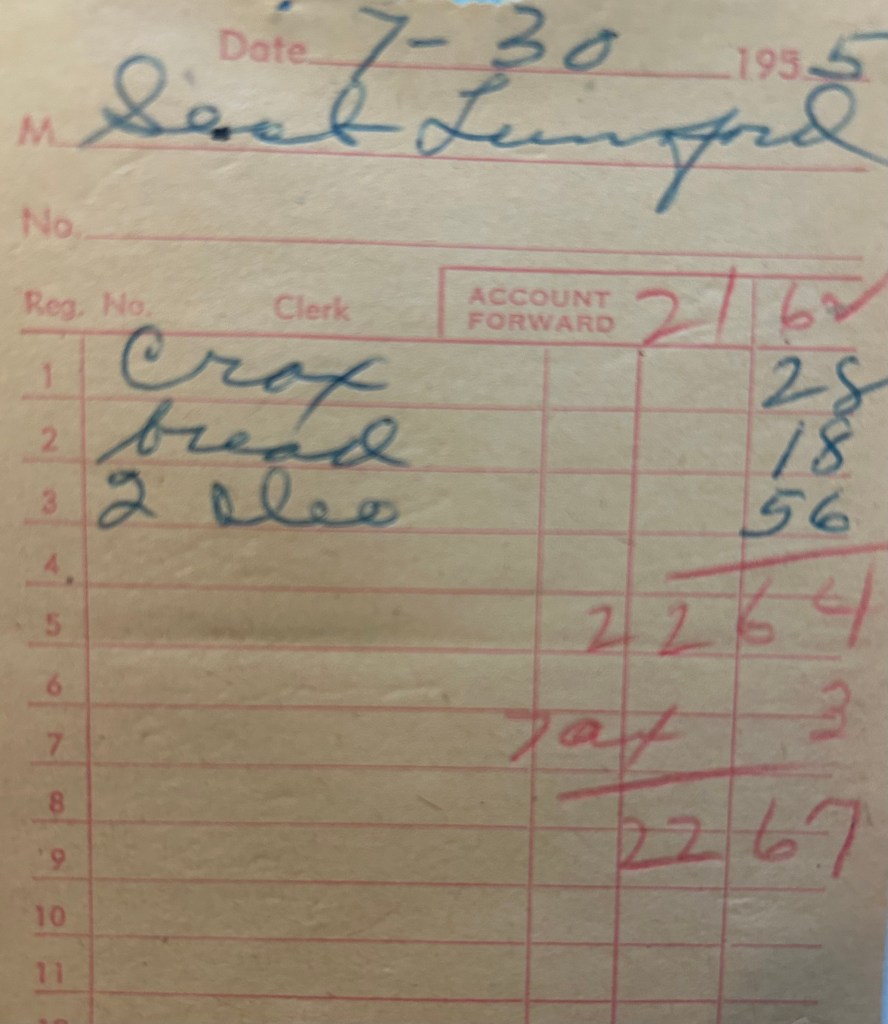 Date 7-30 1955
M Lunsford
No.
Reg. No. Clerk ACCOUNT FORWARD 21 62
1 Crax 28
2 bread 18
3 2 Oleo 56
4
5 22 64
6 3
7 Tax
8
9 22 67
10
11